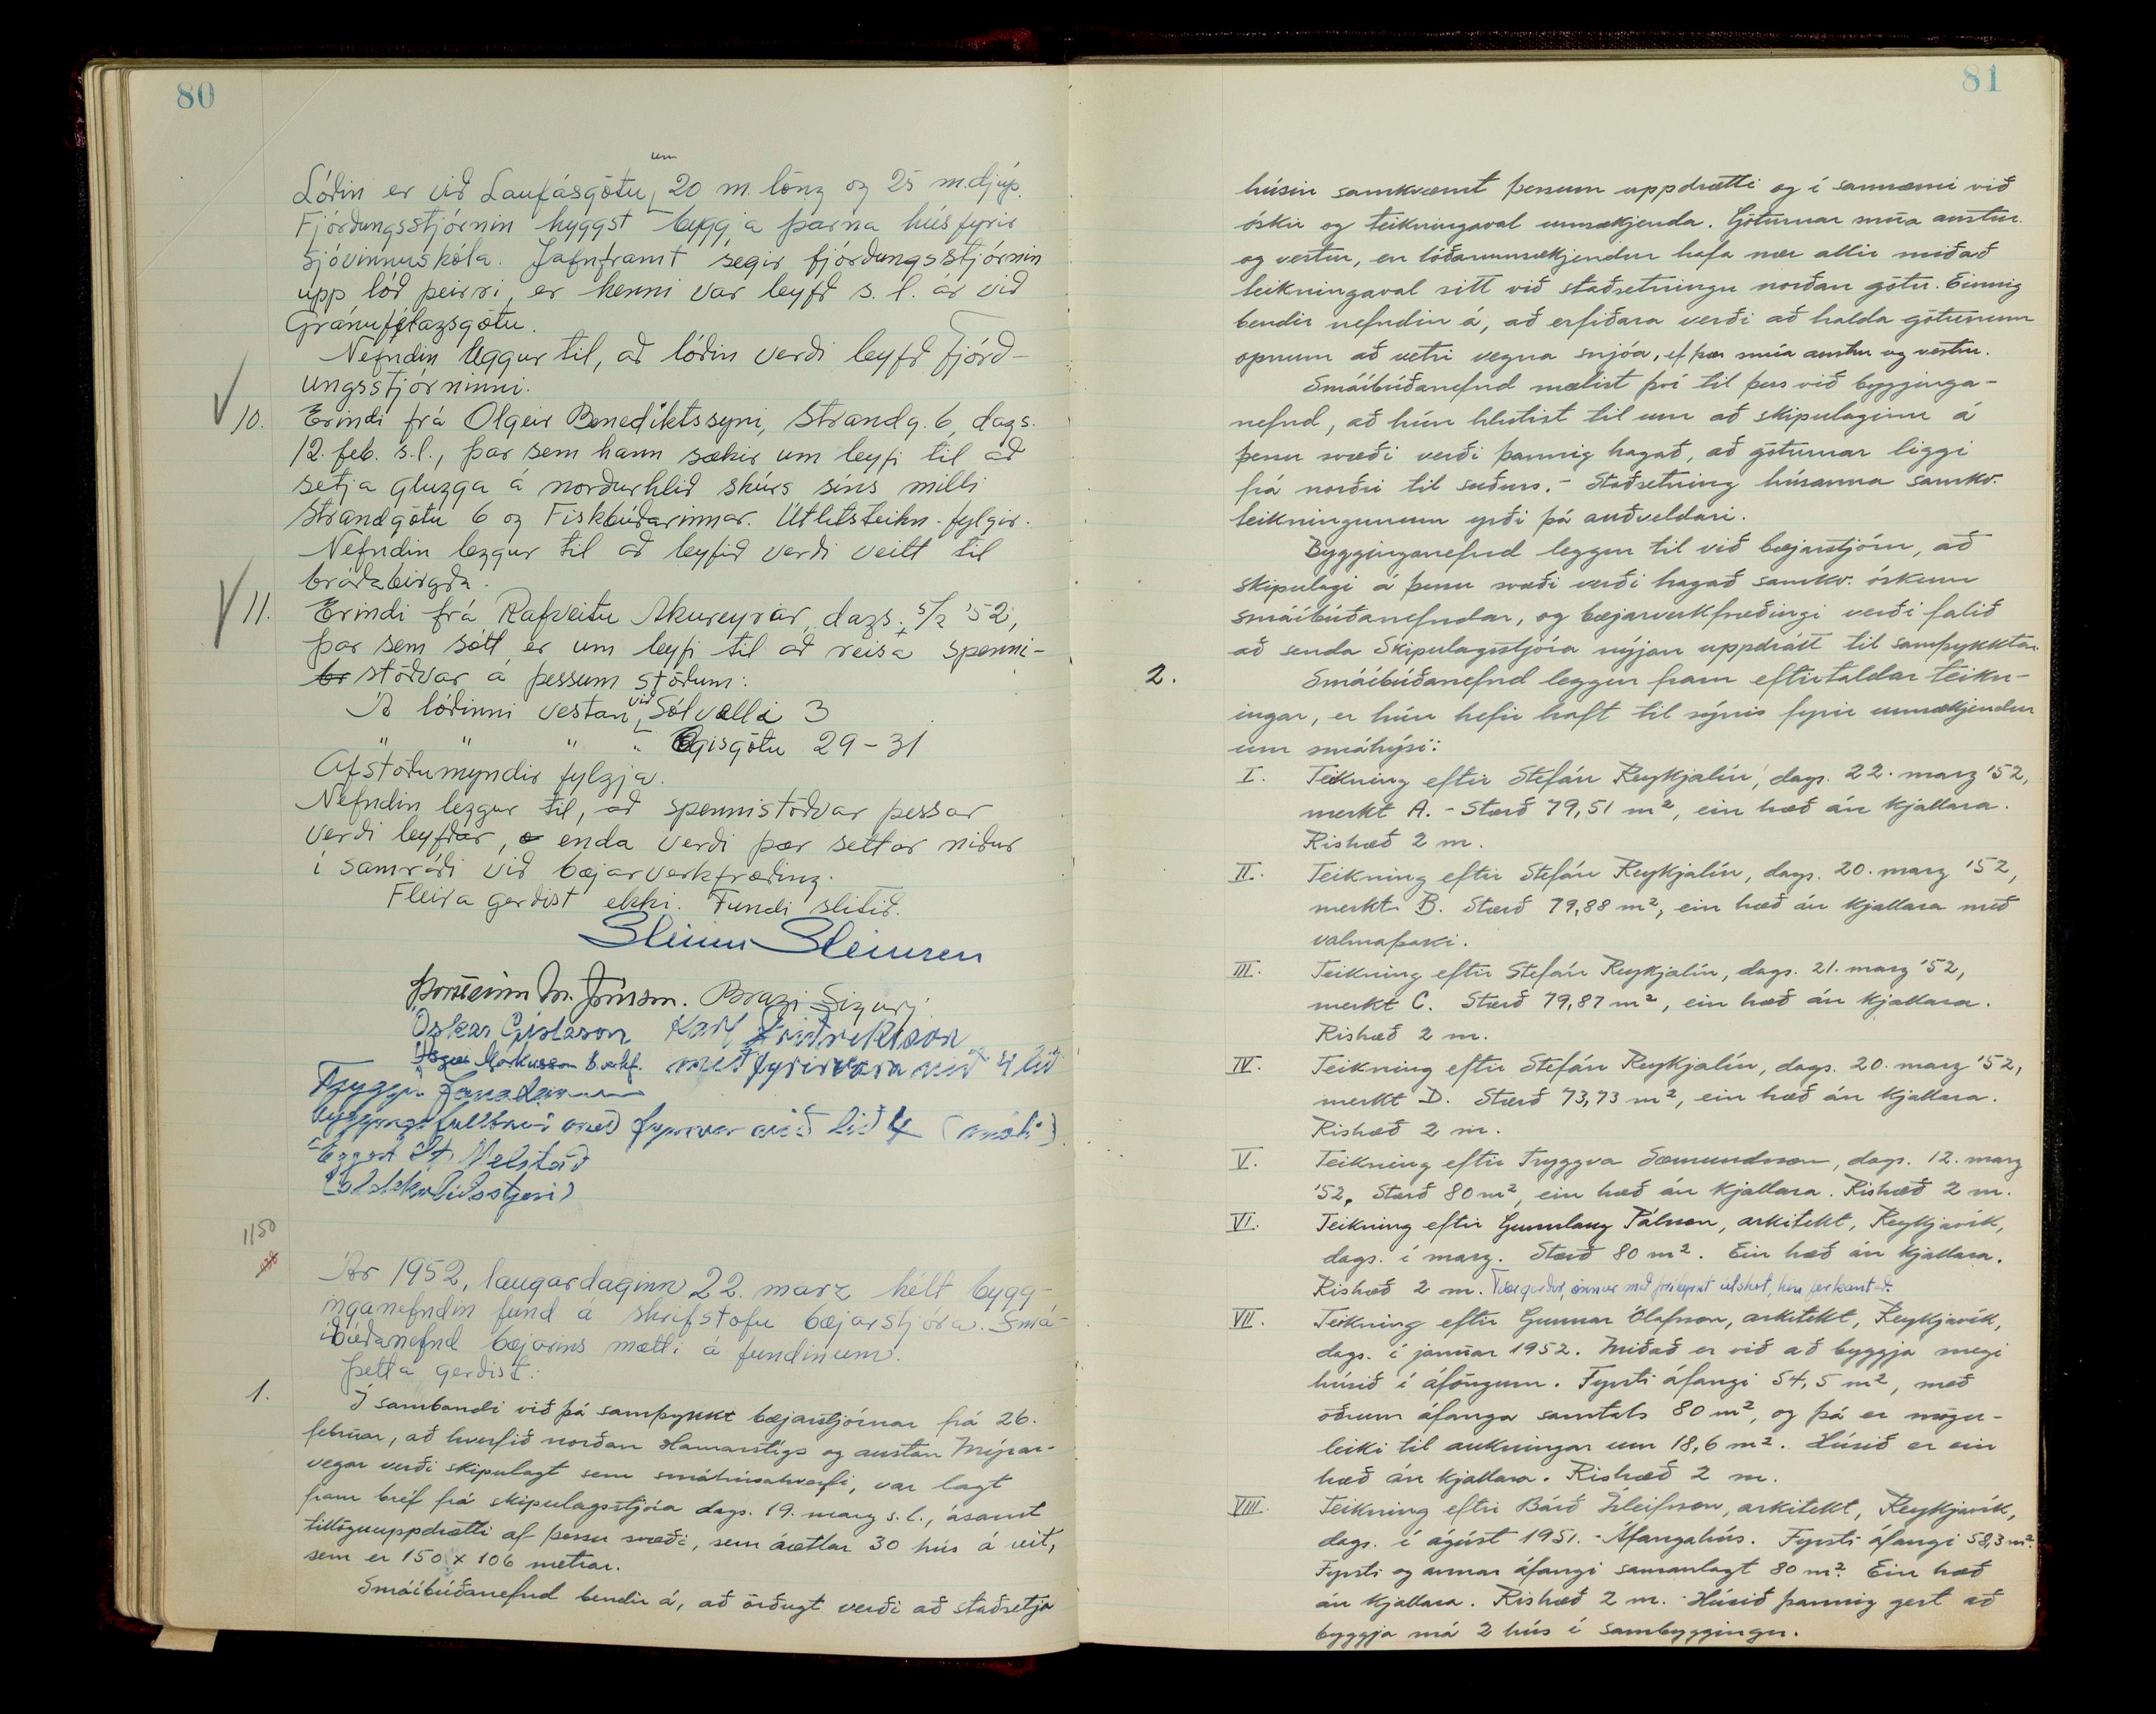 80
um
Lóðin er við Laufásgötu, 20 m. löng og 25 m. djúp.
Fjórðungsstjórnin hyggst byggja þarna hús fyrir
sjóvinnuskóla. Jafnframt segir fjórðungsstjórnin
upp lóð þeirri, er henni var leyfð s.l. ár við
Gránufélagsgötu.
Nefndin leggur til, að lóðin verði leyfð Fjórð-
ungsstjórninni.
10. Erindi frá Olgeir Benediktssyni, Strandg. 6, dags.
12. feb. s.l., þar sem hann sækir um leyfi til að
setja glugga á norðurhlið skúrs síns milli
Strandgötu 6 og Fiskbúðarinnar. Útlitsteikn. fylgir.
Nefndin leggur til að leyfið verði veitt til
bráðabirgða.
11. Erindi frá Rafveitu Akureyrar, dags. 5/2 '52,
þar sem sótt er um leyfi til að reisa spenni-
br stöðvar á þessum stöðum:
Á lóðinni vestan við Sólvelli 3
" " " " Ægisgötu 29-31
Afstöðumyndir fylgja.
Nefndin leggur til, að spennistöðvar þessar
verði leyfðar, enda verði þær settar niður
í samráði við bæjarverkfræðing.
Fleira gerðist ekki. Fundi slitið.
Steinn Steinsen
Þorsteinn M. Jónsson. Bragi Sigurj.
Óskar Gíslason Karl Friðriksson
Ásgeir Markússon B.verkf. með fyrirvara við 4 lið
Tryggvi Jónatansson
byggingafulltrúi með fyrirvar við lið 4 (móti)
Eggert St. Melstað
(slökkviliðsstjóri)
1150
Ár 1952, laugardaginn 22. marz hélt bygg-
inganefndin fund á skrifstofu bæjarstjóra. Smá-
íbúðanefnd bæjarins mætti á fundinum.
Þetta gerðist:
1. Í sambandi við þá samþykkt bæjarstjórnar frá 26.
febrúar, að hverfið norðan Hamarstígs og austan Mýrar-
vegar verði skipulagt sem smáhúsahverfi, var lagt
fram bréf frá skipulagsstjóra dags. 19. marz s.l., ásamt
tillöguuppdrætti af þessu svæði, sem áætlar 30 hús á reit,
sem er 150 x 106 metrar.
Smáíbúðanefnd bendir á, að örðugt verði að staðsetja
81
húsin samkvæmt þessum uppdrætti og í samræmi við
óskir og teikningaval umsækjenda. Göturnar snúa austur
og vestur, en lóðarumsækjendur hafa nær allir miðað
teikningaval sitt við staðsetningu norðan götu. Einnig
bendir nefndin á, að erfiðara verði að halda götunum
opnum að vetri vegna snjóa, ef þær snúa austur og vestur.
Smáíbúðanefnd mælist því til þess við bygginga-
nefnd, að hún hlutist til um að skipulaginu á
þessu svæði verði þannig hagað, að göturnar liggi
frá norðri til suðurs. - Staðsetning húsanna samkv.
teikningunum yrði þá auðveldari.
Bygginganefnd leggur til við bæjarstjórn, að
skipulagi á þessu svæði verði hagað samkv. óskum
smáíbúðanefndar, og bæjarverkfræðingi verði falið
að senda Skipulagsstjóra nýjan uppdrátt til samþykktar.
2. Smáíbúðanefnd leggur fram eftirtaldar teikn-
ingar, er hún hefir haft til sýnis fyrir umsækjendur
um smáhýsi:
I. Teikning eftir Stefán Reykjalín, dags. 22. marz '52,
merkt A. - Stærð 79,51 m², ein hæð án kjallara.
Rishæð 2 m.
II. Teikning eftir Stefán Reykjalín, dags. 20. marz '52,
merkt B. Stærð 79,88 m², ein hæð án kjallara með
valmaþaki.
III. Teikning eftir Stefán Reykjalín, dags. 21. marz '52,
merkt C. Stærð 79,87 m², ein hæð án kjallara.
Rishæð 2 m.
IV. Teikning eftir Stefán Reykjalín, dags. 20. marz '52,
merkt D. Stærð 73,73 m², ein hæð án kjallara.
Rishæð 2 m.
V. Teikning eftir Tryggva Sæmundsson, dags. 12. marz
'52. Stærð 80 m², ein hæð án kjallara. Rishæð 2 m.
VI. Teikning eftir Gunnlaug Pálsson, arkitekt, Reykjavík,
dags. í marz. Stærð 80 m². Ein hæð án kjallara.
Rishæð 2 m. Tvær gerðir, önnur með útskot, hin ferkantað.
VII. Teikning eftir Gunnar Ólafsson, arkitekt, Reykjavík,
dags. í janúar 1952. Miðað er við að byggja megi
húsið í áföngum. Fyrsti áfangi 54,5 m², með
öðrum áfanga samtals 80 m², og þá er mögu-
leiki til aukningar um 18,6 m². Húsið er ein
hæð án kjallara. Rishæð 2 m.
VIII. Teikning eftir Bárð Ísleifsson, arkitekt, Reykjavík,
dags. í ágúst 1951. - Áfangahús. Fyrsti áfangi 58,3 m².
Fyrsti og annar áfangi samanlagt 80 m². Ein hæð
án kjallara. Rishæð 2 m. Húsið þannig gert að
byggja má 2 hús í sambyggingu.